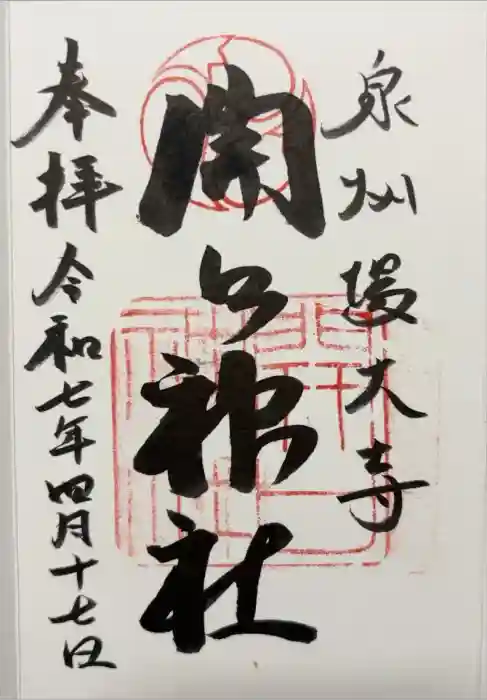 泉州堺大寺
開口神社
奉拝 令和七年四月十七日